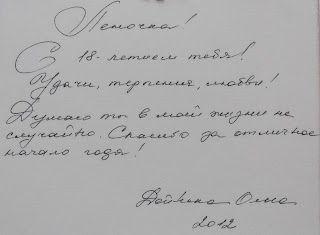 Леночка!
С 18-летием тебя!
Удачи, терпения, любви!
Думаю ты в моей жизни не
случайно. Спасибо за отличное
начало года!
Ольга
2012